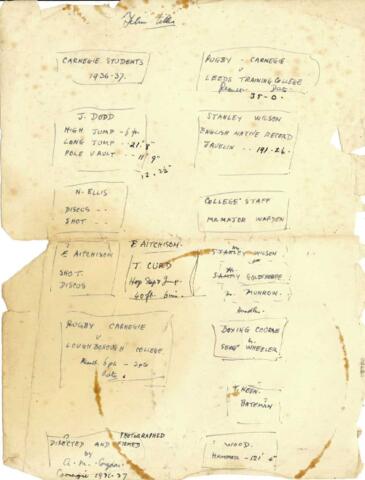 Film Titles
CARNEGIE STUDENTS
1936-37.
RUGBY - CARNEGIE
v
LEEDS TRAINING COLLEGE
Result Date
35-0.
J. DODD
HIGH JUMP - 6 ft.
LONG JUMP - 21' 8"
POLE VAULT -- 11' 9"
12.2½"
STANLEY WILSON
ENGLISH NATIVE RECORD
JAVELIN -- 191-26.
N. ELLIS
DISCUS --
SHOT --
COLLEGE STAFF
MR MAJOR WARDEN
E AITCHISON
SHOT.
DISCUS
E AITCHISON.
T. CURD
Hop Step & Jump
40 ft 6 ins.
STANLEY WILSON
SAMMY GOLDTHORPE
MUNRON.
RUGBY CARNEGIE
v
LOUGHBOROUGH COLLEGE
Result 6 pts - 3 pts
Date.
BOXING COURSE
SERGT WHEELER.
BATEMAN
DIRECTED AND FILMED
PHOTOGRAPHED
by
Carnegie 1936-37
WOOD.
HAMMER - 121' 6"